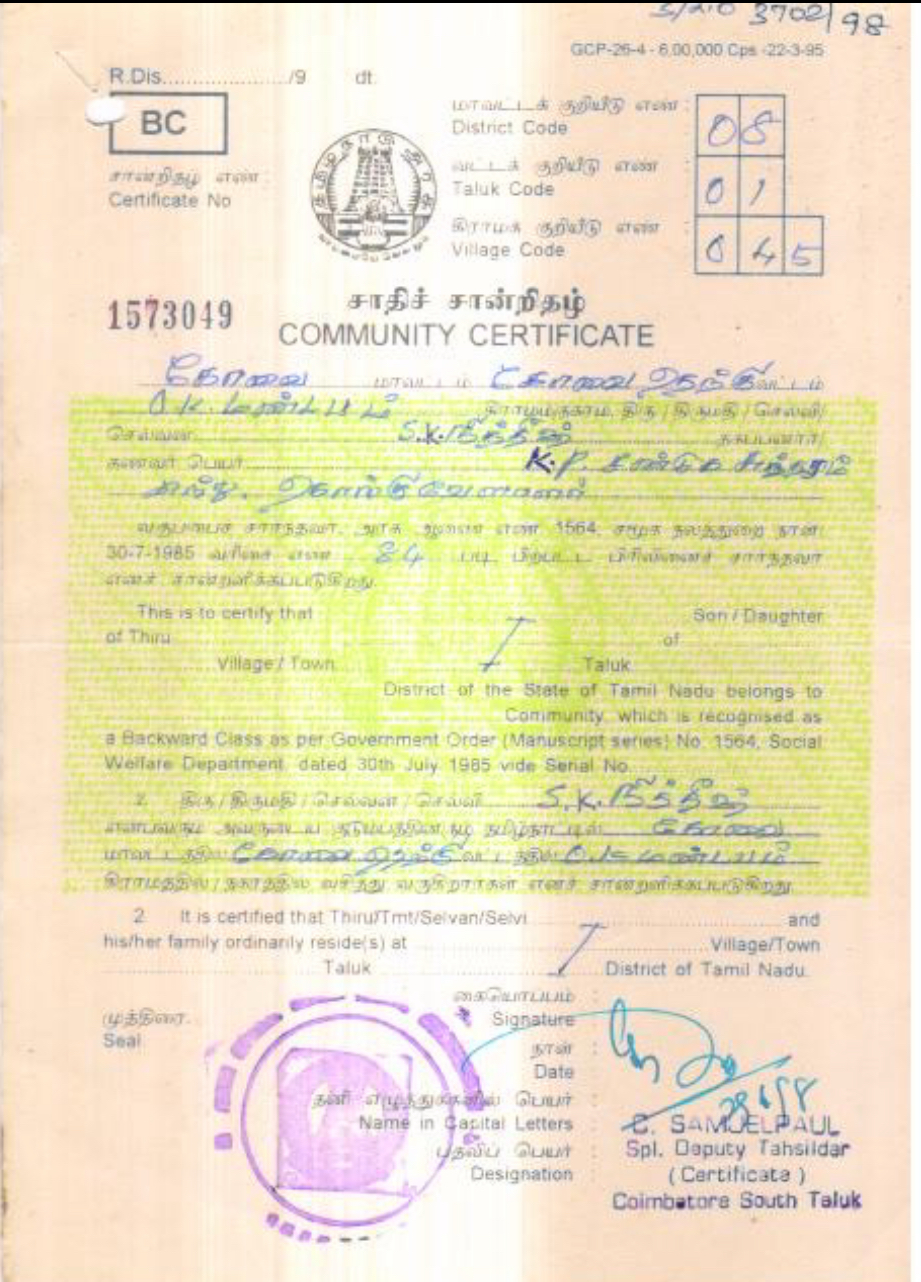 3702/98
GCP-26-4 - 6,00,000 Cps -22-3-95
R.Dis............../9 dt.
BC
மாவட்டக் குறியீடு எண் :
District Code
08
சான்றிதழ் எண் :
Certificate No
வட்டக் குறியீடு எண் :
Taluk Code
01
கிராமக் குறியீடு எண் :
Village Code
045
1573049
சாதிச் சான்றிதழ்
COMMUNITY CERTIFICATE
கோவை மாவட்டம் கோவை தெற்கு வட்டம்
திரு / திருமதி / செல்வி/
செல்வன் S.K. தகப்பனார்/
கணவர் பெயர் K.P.
வகுப்பைச் சார்ந்தவர். அரசு ஆணை எண் 1564, சமூக நலத்துறை நாள்
30-7-1985 வரிசை எண் 84 படி பிற்பட்ட பிரிவினைச் சார்ந்தவர்
எனச் சான்றளிக்கப்படுகிறது.
This is to certify that Son / Daughter
of Thiru of
Village / Town Taluk
District of the State of Tamil Nadu belongs to
Community, which is recognised as
a Backward Class as per Government Order (Manuscript series) No. 1564, Social
Welfare Department, dated 30th July 1985 vide Serial No.
2. திரு / திருமதி / செல்வன் / செல்வி S.K.
என்பவரும் அவருடைய குடும்பத்தினரும் தமிழ்நாட்டில் கோவை
மாவட்டத்தில் கோவை தெற்கு வட்டத்தில்
கிராமத்தில் / நகரத்தில் வசித்து வருகிறார்கள் எனச் சான்றளிக்கப்படுகிறது.
2. It is certified that Thiru/Tmt/Selvan/Selvi and
his/her family ordinarily reside(s) at Village/Town
Taluk District of Tamil Nadu.
முத்திரை.
Seal
கையொப்பம் :
Signature
நாள் :
Date
தனி எழுத்துக்களில் பெயர் :
Name in Capital Letters :
C. SAMUELPAUL
பதவிப் பெயர் :
Designation :
Spl. Deputy Tahsildar
( Certificate )
Coimbatore South Taluk